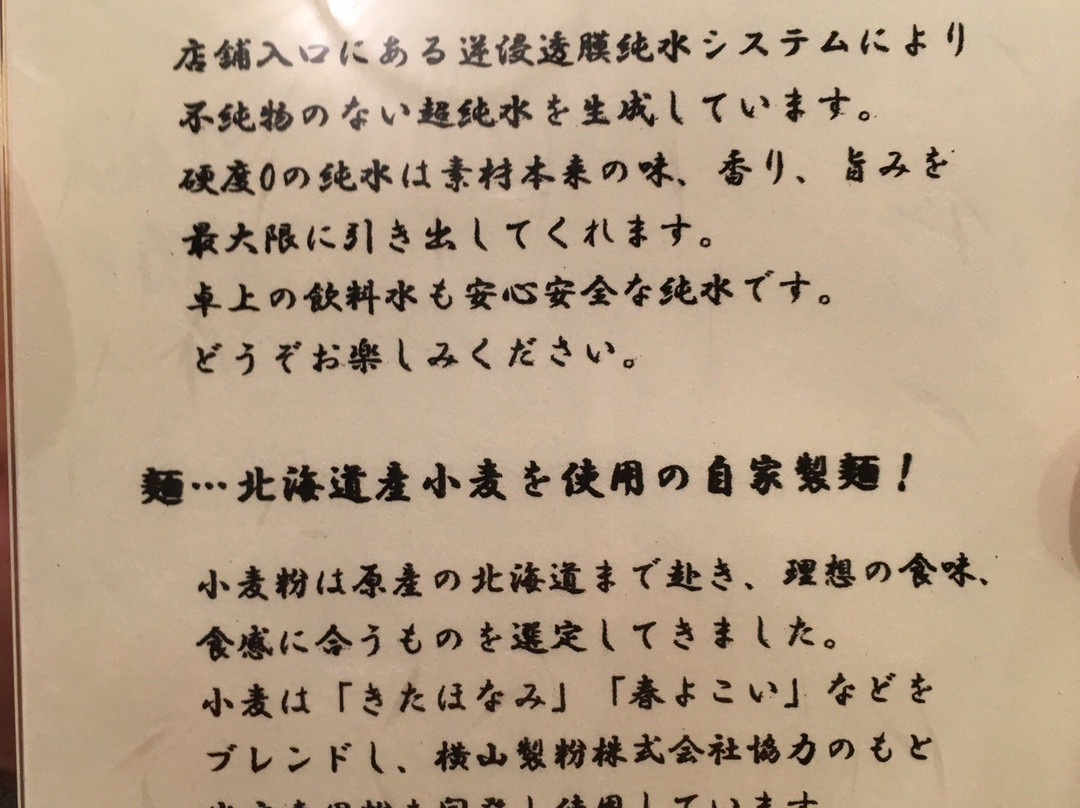 店舗入口にある逆浸透膜純水システムにより
不純物のない超純水を生成しています。
硬度0の純水は素材本来の味、香り、旨みを
最大限に引き出してくれます。
卓上の飲料水も安心安全な純水です。
どうぞお楽しみください。
麺…北海道産小麦を使用の自家製麺！
小麦粉は原産の北海道まで赴き、理想の食味、
食感に合うものを選定してきました。
小麦は「きたほなみ」「春よこい」などを
ブレンドし、横山製粉株式会社協力のもと
開発し使用しています